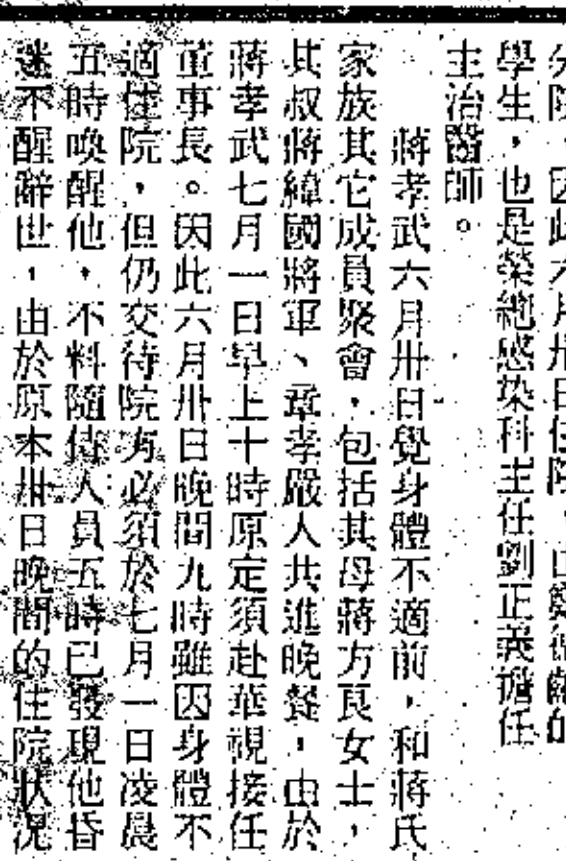 分院，因此六月卅日住院，由
學生，也是榮總感染科主任劉正義擔任
主治醫師。
蔣孝武六月卅日覺身體不適前，和蔣氏
家族其它成員聚會，包括其母蔣方良女士，
其叔蔣緯國將軍、章孝嚴人共進晚餐，由於
蔣孝武七月一日早上十時原定須赴華視接任
董事長。因此六月卅日晚間九時雖因身體不
適住院，但仍交待院方必須於七月一日凌晨
五時喚醒他，不料隨侍人員五時已發現他昏
迷不醒辭世，由於原本卅日晚間的住院狀況